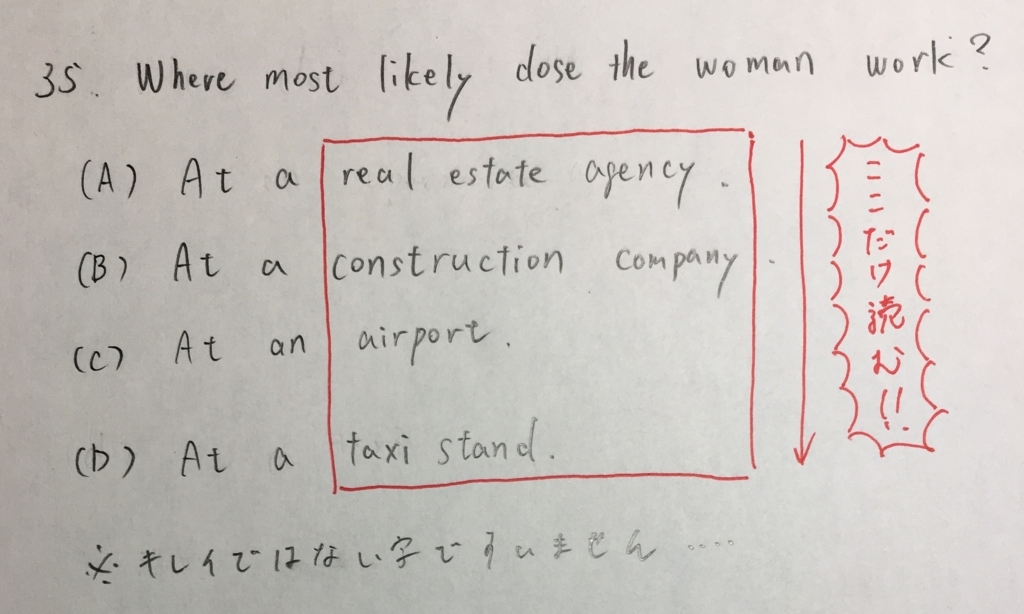 35. Where most likely dose the woman work?
(A) At a real estate agency.
(B) At a construction company.
(C) At an airport.
(D) At a taxi stand.
ここだけ読む!!
※キレイではない字ですいません....